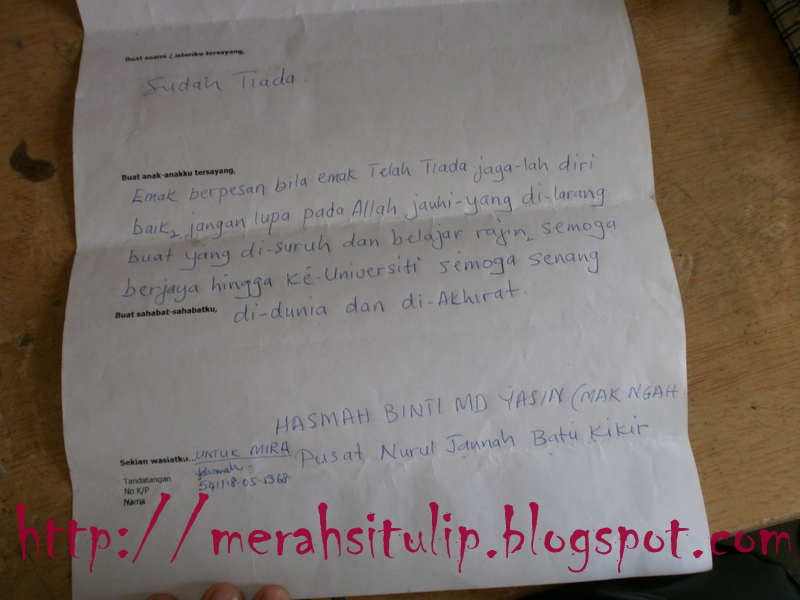 Buat suami / isteriku tersayang,
Sudah Tiada.
Buat anak-anakku tersayang,
Emak berpesan bila emak Telah Tiada jaga-lah diri
baik2 jangan lupa pada Allah jauhi-yang di-larang
buat yang di-suruh dan belajar rajin2 semoga
berjaya hingga Ke-Universiti semoga senang
Buat sahabat-sahabatku, di-dunia dan di-Akhirat.
HASMAH BINTI MD YASIN (MAK NGAH
Sekian wasiatku... UNTUK MIRA Pusat Nurul Jannah Batu Kikir
Tandatangan Hasmah
No K/P 541118-05-5368
Nama
http://merahsitulip.blogspot.com